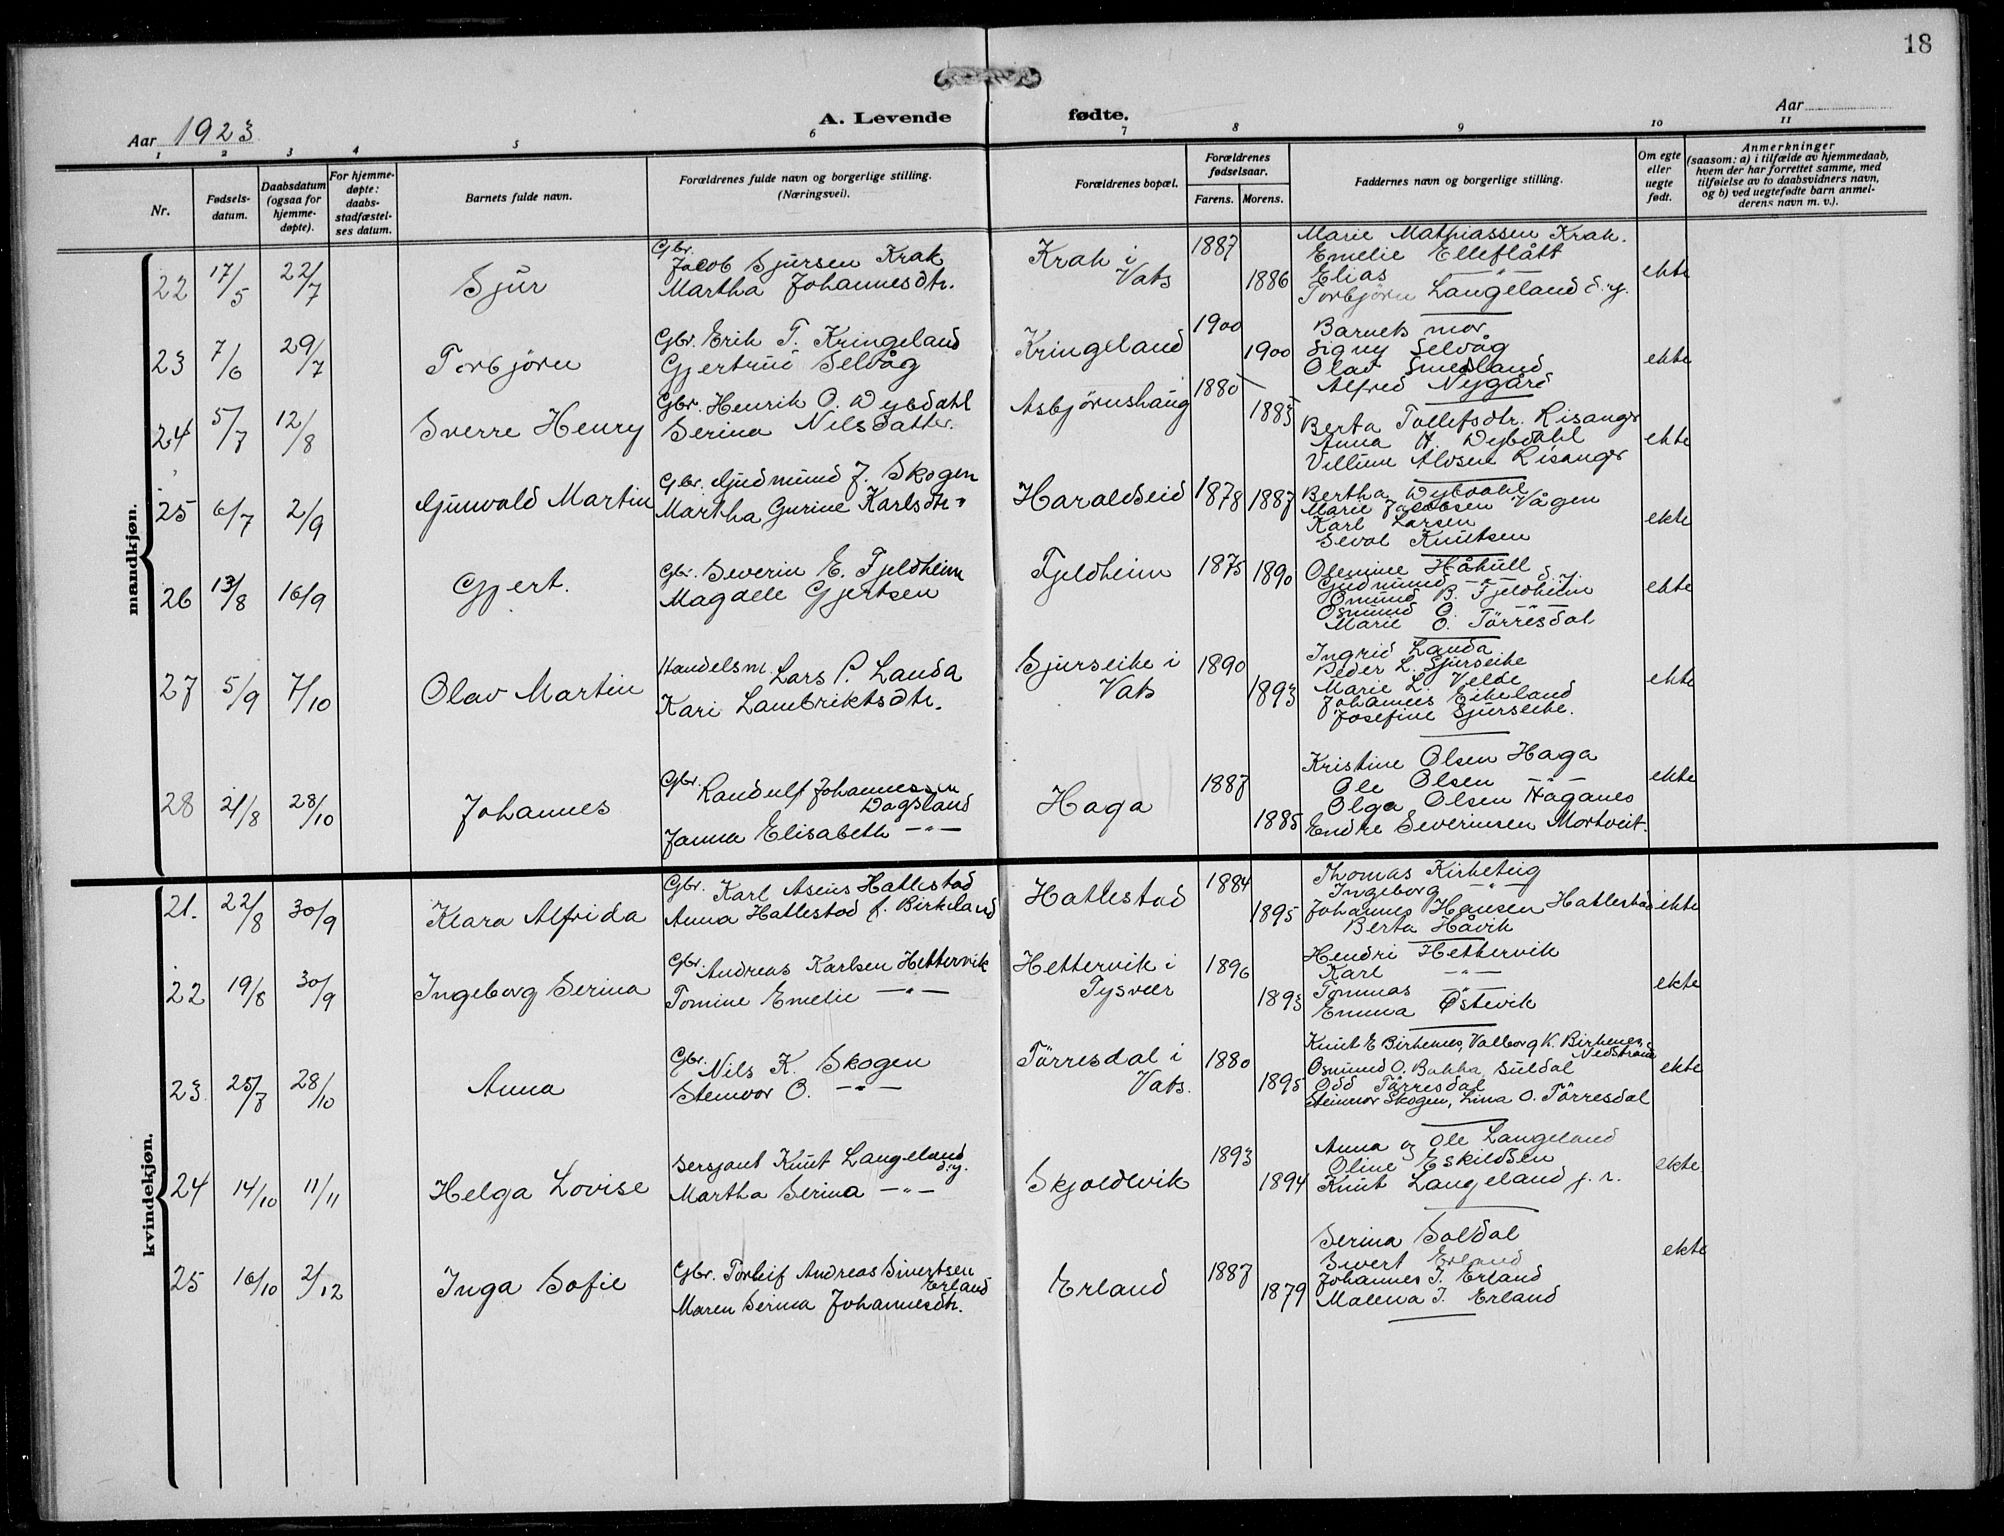 18
A. Levende fødte.
Aar 1923
Aar
1 2 3 4 5 6 7 8 9 10 11
Nr.
Fødsels-
datum.
Daabsdatum
(ogsaa for
hjemme-
døpte).
For hjemme-
døpte:
daabs-
stadfæstel-
ses datum.
Barnets fulde navn.
Forældrenes fulde navn og borgerlige stilling.
(Næringsvei).
Forældrenes bopæl.
Forældrenes
fødselsaar.
Farens. Morens.
Faddernes navn og borgerlige stilling.
Om egte
eller
uegte
født.
Anmerkninger
(saasom: a) i tilfælde av hjemmedaab,
hvem der har forrettet samme, med
tilføielse av to daabsvidners navn,
og b) ved uegtefødte barn anmel-
derens navn m. v.).
mandkjøn.
22 17/5 22/7 Sjur
Gbr. Jacob Sjursen Krak
Martha Johannesdtr.
Krak i
Vats
1887 1886
Marie Mathiassen Krak.
Emelie Elleflått
Elias —"—
Torbjørn Langeland d.y.
ekte
23 7/6 29/7 Torbjörn
Gbr. Erik T. Kringeland
Gjertrud Selvåg
Kringeland
1900 1900
Barnets mor
Signy Selvåg
Olav Smedsland
Alfred Nygård
ekte
24 5/7 12/8 Sverre Henry
Gbr. Henrik O. Dybdahl
Serina Nilsdatter.
Asbjörnshaug
1880 1883
Berta Tollefsdtr. Risanger
Anna H. Dybdahl
Villum Alvsen Risanger
ekte
25 6/7 2/9 Gunvald Martin
Gbr. Gudmund J. Skogen
Martha Gurine Karlsdtr.
Haraldseid
1878 1887
Bertha Dybdahl
Marie Jacobsen Vågen
Karl Larsen
Seval Knutsen
ekte
26 13/8 16/9 Gjert.
Gbr. Severin E. Fjeldheim
Magdele Gjertsen
Fjeldheim
1875 1890
Olemine Håhull
Gudmund —"— d.y.
Omund B. Fjeldheim
Osmund O. —"—
Marie O. Törresdal
ekte
27 5/9 7/10 Olav Martin
Handelsm. Lars P. Landa
Kari Lambriktsdtr.
Sjurseike i
Vats
1890 1893
Ingrid Landa
Peder L. Sjurseike
Marie L. Velde
Johannes Eikeland
Josefine Sjurseike.
ekte
28 21/8 28/10 Johannes
Gbr. Randulf Johannessen
Dagsland
Janna Elisabeth —"—
Haga
1887 1885
Kristine Olsen Haga
Ole Olsen —"—
Olga Olsen Håganes
Endre Severinsen Mortveit.
ekte
kvindekjøn.
21. 22/8 30/9 Klara Alfrida
Gbr. Karl Asens Hatlestad
Anna Hatlestad f. Birkeland
Hatlestad
1884 1895
Thomas Kirketeig
Ingeborg —"—
Johannes Hansen Hatlestad
Berta Håvik
ekte
22 19/8 30/9 Ingeborg Serina
Gbr. Andreas Karlsen Hettervik
Tomine Emelie —"—
Hettervik i
Tysvær
1896 1893
Hendri Hettervik
Karl —"—
Tommas —"—
Emma Østevik
ekte
23 25/8 28/10 Anna
Gbr. Nils K. Skogen
Steinvor O. —"—
Törresdal i
Vats.
1880 1895
Knut E Birkenes, Valborg K. Birkenes,
Nedstrand
Osmund O. Bakka Suldal
Odd Törresdal
Steinvor Skogen, Lina O. Törresdal
ekte
24 14/10 11/11 Helga Lovise
Sersjant Knut Langeland
d.y.
Martha Serina —"—
Skjoldevik
1893 1894
Anna og Ole Langeland
Oline Eskildsen
Knut Langeland j. r.
ekte
25 16/10 2/12 Inga Sofie
Gbr. Torleif Andreas Sivertsen
Erland
Maren Serina Johannesdtr.
Erland
1887 1879
Serina Soldal
Sivert Erland
Johannes T. Erland
Malena T. Erland
ekte